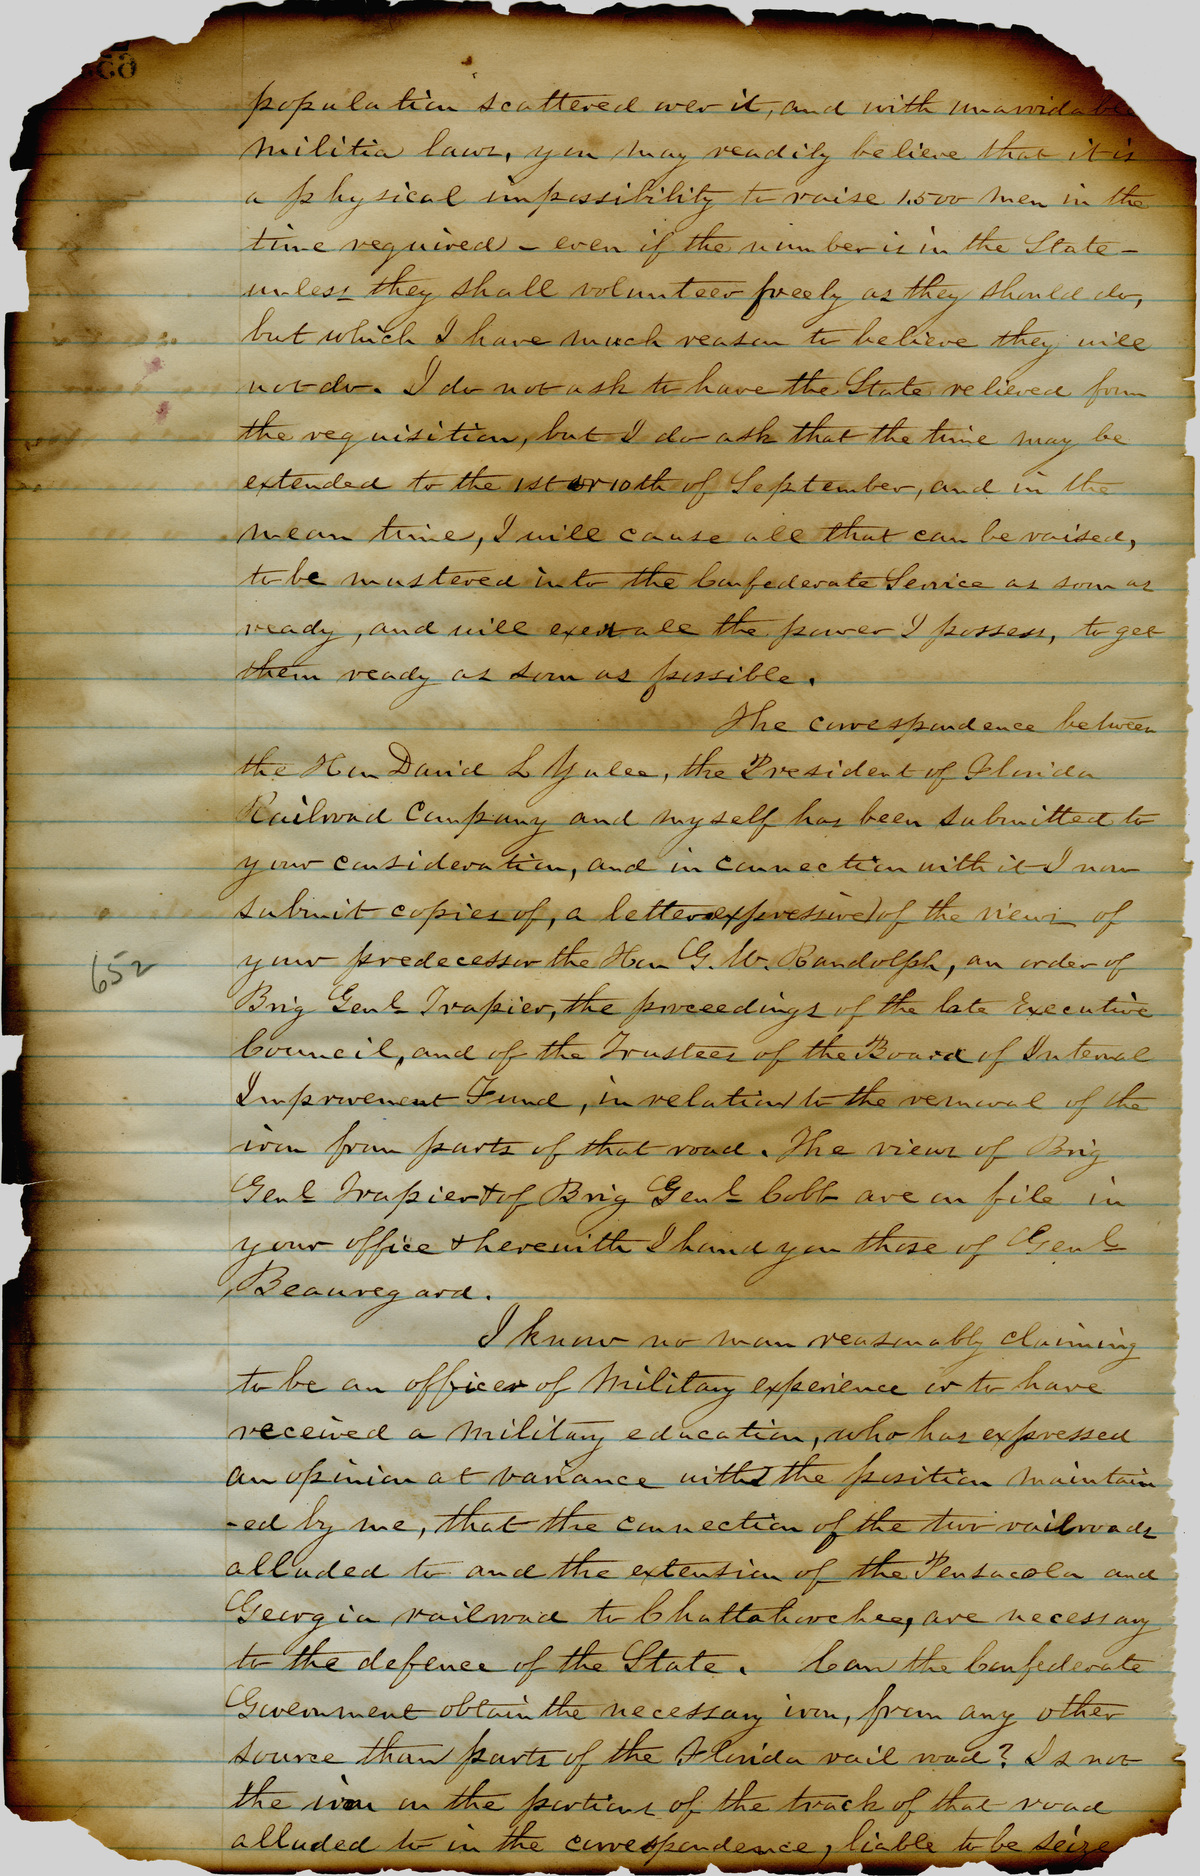 population scattered over it, and with unavoidable
militia laws, you may readily believe that it is
a physical impossibility to raise 1.500 men in the
time required - even if the number is in the State -
unless they shall volunteer freely as they should do,
but which I have much reason to believe they will
not do. I do not ask to have the State relieved from
the requisition, but I do ask that the time may be
extended to the 1st or 10th of September, and in the
mean time, I will cause all that can be raised,
to be mustered into the Confederate Service as soon as
ready, and will exert all the power I possess, to get
them ready as soon as possible.
The correspondence between
the Hon David L Yulee, the President of Florida
Railroad Company and myself has been submitted to
your consideration, and in connection with it I now
submit copies of, a letter expressive of the views of
652
your predecessor the Hon G. W. Randolph, an order of
Brig Genl Trapier, the proceedings of the late Executive
Council, and of the Trustees of the Board of Internal
Improvement Fund, in relation to the removal of the
iron from parts of that road. The views of Brig
Genl Trapier & of Brig Genl Cobb are on file in
your office & herewith I hand you those of Genl
Beauregard.
I know no man reasonably claiming
to be an officer of Military experience or to have
received a military education, who has expressed
an opinion at variance with the position maintain
-ed by me, that the connection of the two railroads
alluded to and the extension of the Pensacola and
Georgia railroad to Chattahoochee, are necessary
to the defence of the State. Can the Confederate
Government obtain the necessary iron, from any other
source than parts of the Florida rail road? Is not
the iron on the portions of the track of that road
alluded to in the correspondence, liable to be seize